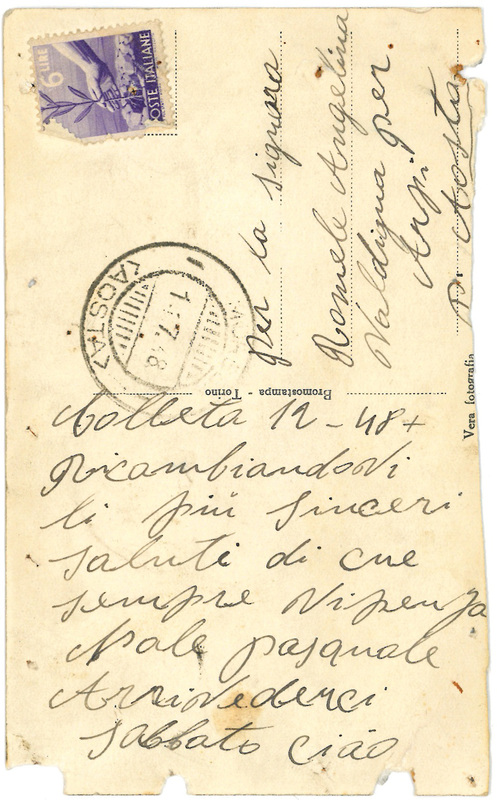 6 LIRE
POSTE ITALIANE
Per la signora
Romele Angelina
Valdigna per
Arpi
P. Aosta
(AOSTA)
1.7.48
Bromostampa - Torino
Vera fotografia
12-48+
Ricambiandovi
li più sinceri
saluti di cue
sempre vi penza
Male pasquale
Arrivederci
Sabbato ciao